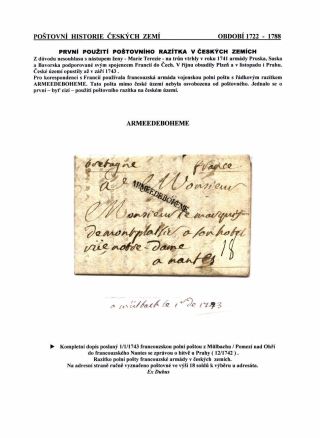 POŠTOVNÍ HISTORIE ČESKÝCH ZEMÍ OBDOBÍ 1722 - 1788
PRVNÍ POUŽITÍ POŠTOVNÍHO RAZÍTKA V ČESKÝCH ZEMÍCH
Z důvodu nesouhlasu s nástupem ženy - Marie Terezie - na trůn vtrhly v roku 1741 armády Pruska, Saska
a Bavorska podporované svým spojencem Francií do Čech. V říjnu obsadily Plzeň a v listopadu i Prahu.
České území opustily až v září 1743 .
Pro korespondenci s Francií používala francouzská armáda vojenskou polní poštu s řádkovým razítkem
ARMEEDEBOHEME. Tato pošta mimo české území nebyla osvobozena od poštovného. Jednalo se o
první – byť cizí – použití poštovního razítka na českém území.
ARMEEDEBOHEME
bretagne france
a Monsieur
ARMEEDEBOHEME
Monsieur le marquis
de montplassir a son hotel
vis notre dame
a nantes 18
a müllbach le 1er de 1743
► Kompletní dopis poslaný 1/1/1743 francouzskou polní poštou z Mülbachu / Pomezí nad Ohří
do francouzského Nantes se zprávou o bitvě u Prahy ( 12/1742 ).
Razítko polní pošty francouzské armády v českých zemích.
Na adresní straně ručně vyznačeno poštovné ve výši 18 soldů k výběru u adresáta.
Ex Dubus